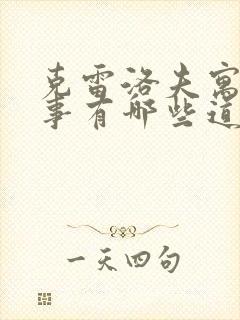 克雷洛夫寓
事有哪些道
一天四句